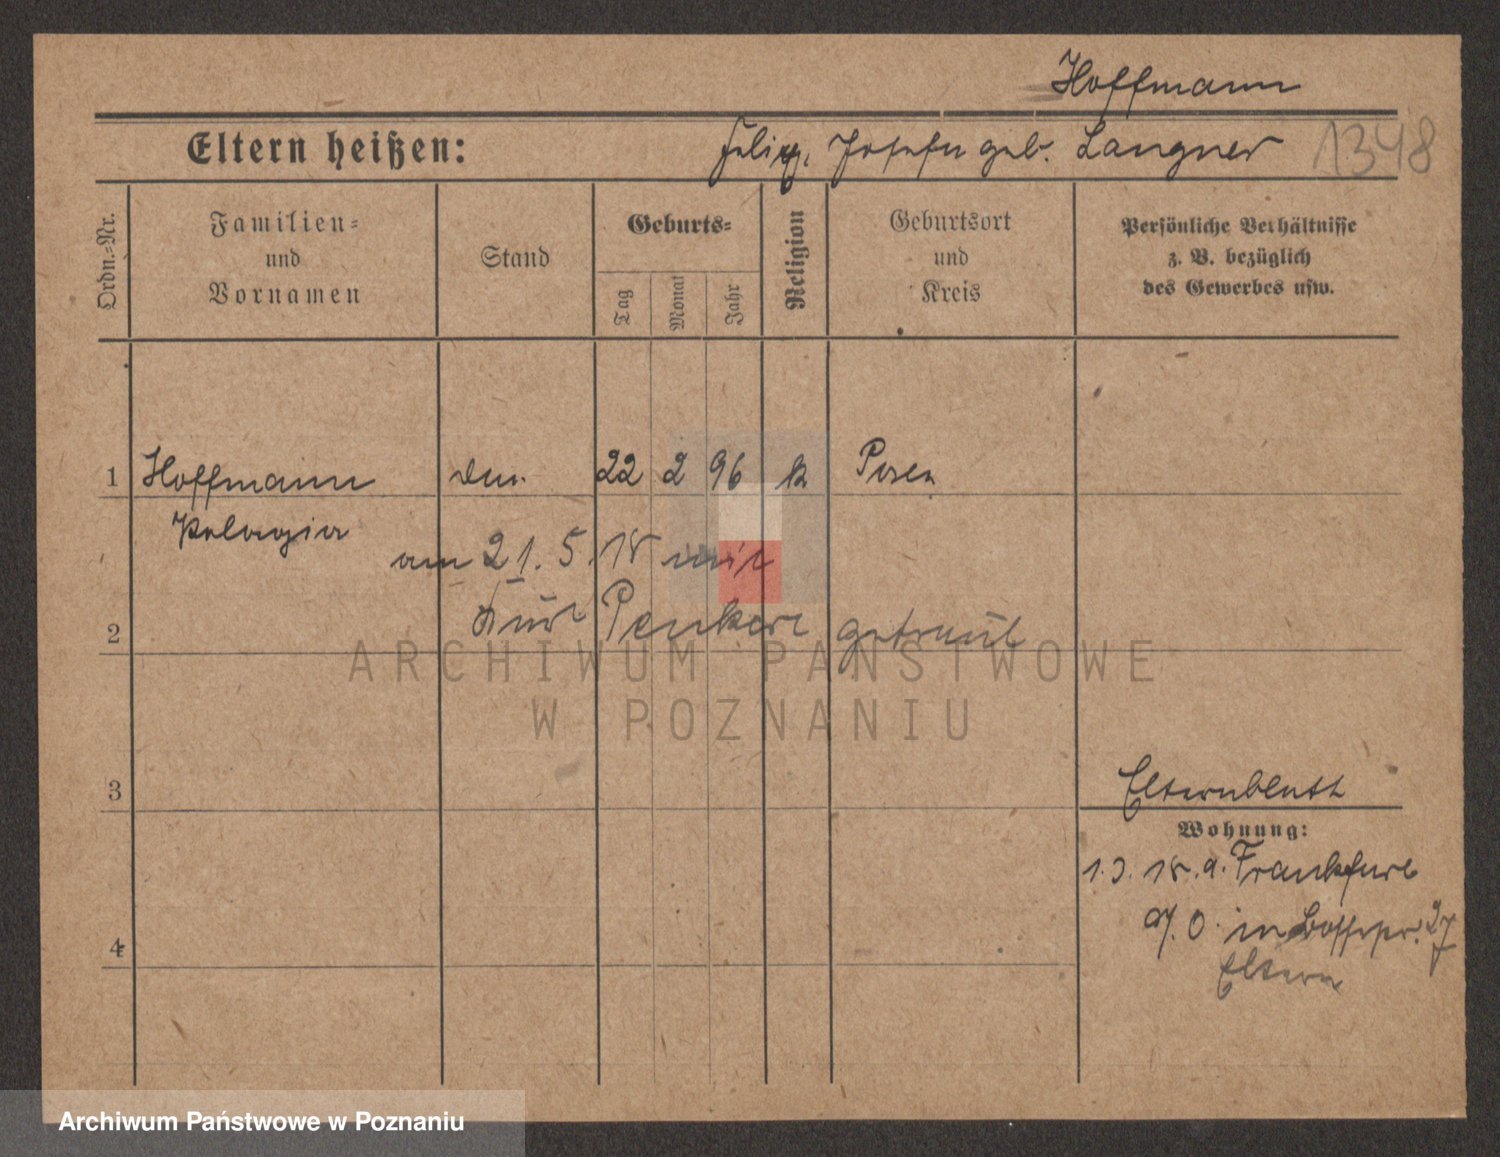 Hoffmann
Eltern heißen: Felix, Josefa geb. Langner 1348
Ordn.-Nr.
Familien-
und
Vornamen
Stand
Geburts-
Tag
Monat
Jahr
Religion
Geburtsort
und
Kreis
Persönliche Verhältnisse
z. B. bezüglich
des Gewerbes usw.
1 Hoffmann 22 2 96 k Posen
Pelagia
am 21. 5. 18 mit
2 Kurt Penkert getraut
ARCHIWUM PAŃSTWOWE
W POZNANIU
3 Elternblatt
Wohnung:
1.3. 18. a. Frankfurt
a/. O. in 27
4 Eltern
Archiwum Państwowe w Poznaniu